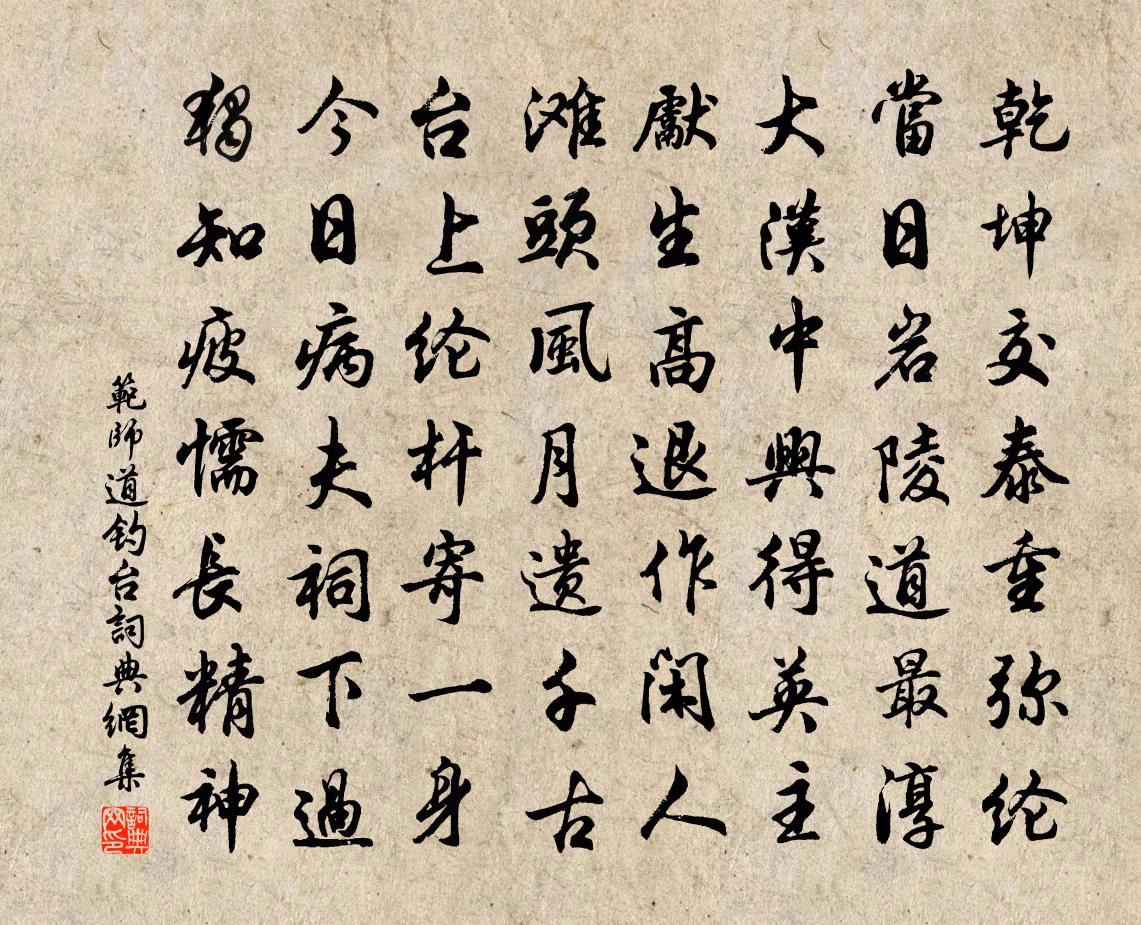 乾坤交泰重弥纶
當日岩陵道最淳
大漢中興得英主
獻生高退作閑人
滩頭風月遗千古
台上纶杆寄一身
今日病夫祠下過
獨知疲懦長精神
範師道釣台詞典網集
詞典网印